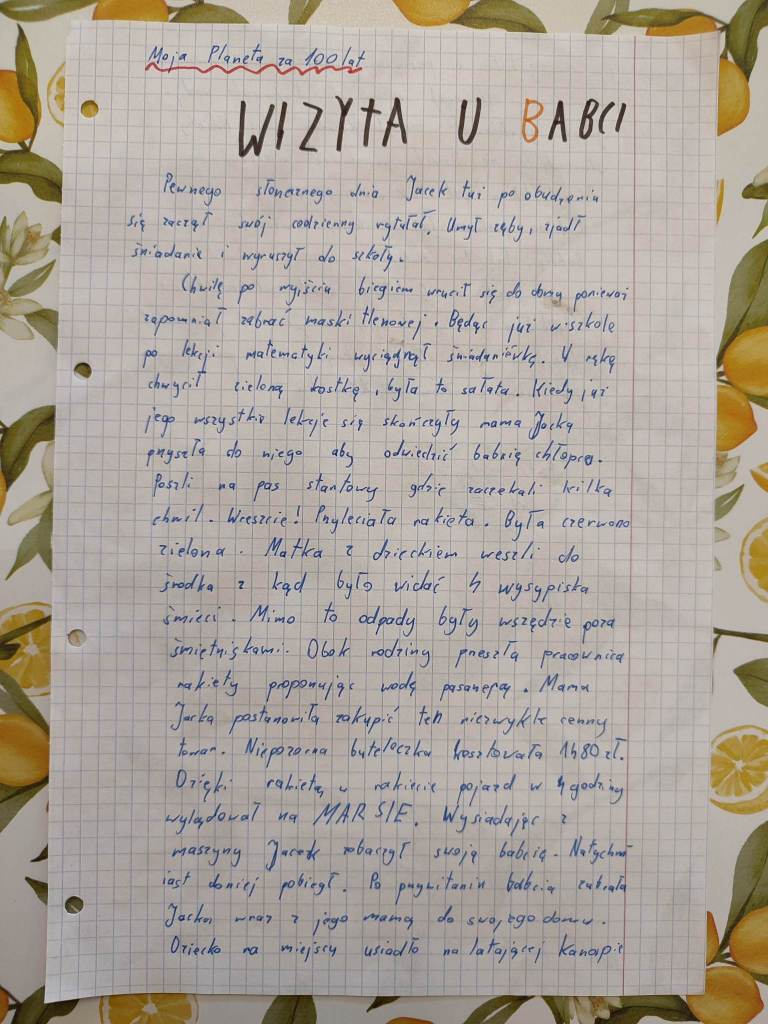 Moja Planeta za 100 lat
WIZYTA U BABCI
Pewnego słonecznego dnia Jacek tuż po obudzeniu
się zaczął swój codzienny rytułał. Umył zęby, zjadł
śniadanie i wyruszył do szkoły.
Chwilę po wyjściu biegiem wrucił się do domu ponieważ
zapomniał zabrać maski tlenowej. Będąc już w szkole
po lekcji matematyki wyciągnął śniadaniówkę. W rękę
chwycił zieloną kostkę, była to sałata. Kiedy już
jego wszystkie lekcje się skończyły mama Jacka
przyszła do niego aby odwiedzić babcię chłopca.
Poszli na pas startowy gdzie zaczekali kilka
chwil. Wreszcie! Przyleciała rakieta. Była czerwono
zielona. Matka z dzieckiem weszli do
środka z kąd było widać 4 wysypiska
śmieci. Mimo to odpady były wszędzie poza
śmietniskami. Obok rodziny przeszła pracownica
rakiety proponując wodę pasażerą. Mama
Jacka postanowiła zakupić ten niezwykle cenny
towar. Niepozorna buteleczka kosztowała 1480 zł.
Dzięki w rakiecie pojazd w 4 godziny
wylądował na MARSIE. Wysiadając z
maszyny Jacek zobaczył swoją babcię. Natychm
iast do niej pobiegł. Po przywitaniu babcia zabrała
Jacka wraz z jego mamą do swojego domu.
Dziecko na miejscu usiadło na latającej kanapie